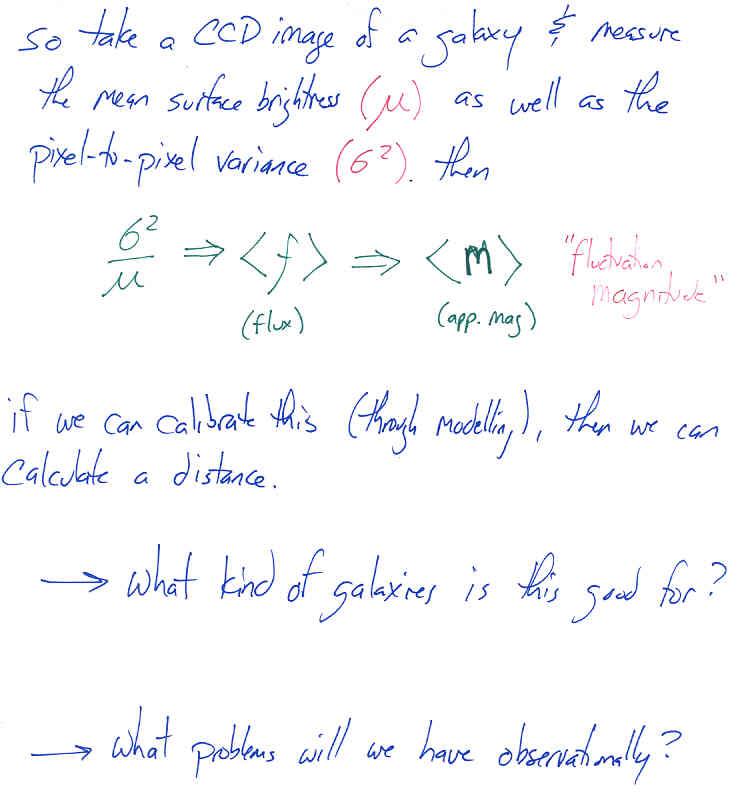 so take a CCD image of a galaxy & measure
the mean surface brightness (μ) as well as the
pixel-to-pixel variance (σ²). then
σ²/μ ⇒ <f> ⇒ <m> "fluctuation magnitude"
(flux) (app. mag)
if we can calibrate this (through modelling), then we can
calculate a distance.
→ what kind of galaxies is this good for?
→ what problems will we have observationally?